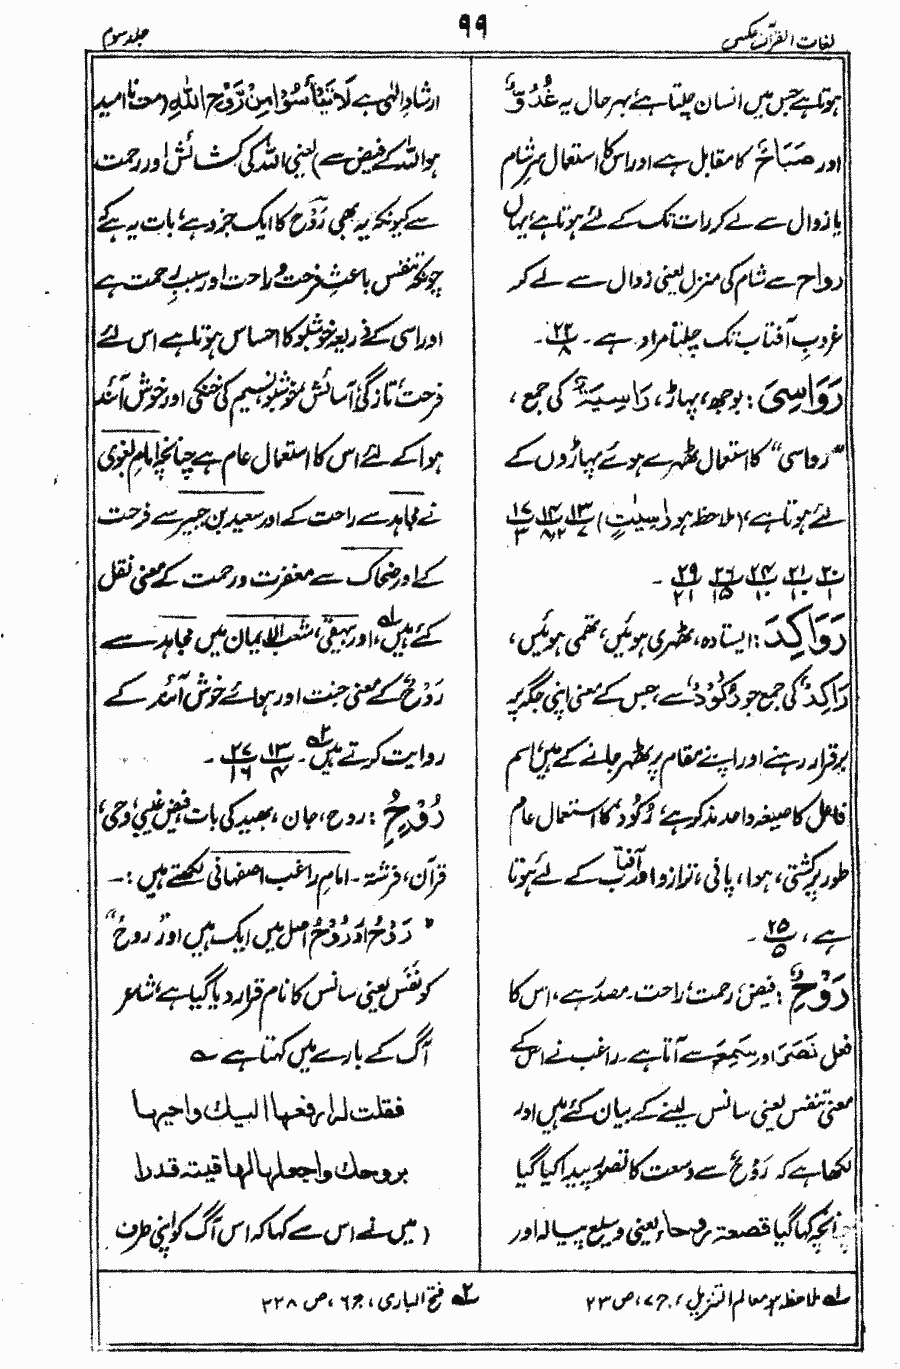 لغات القرآن مکمل
۹۹
جلد سوم
ہوتا ہے جس میں انسان چلتا ہے بہر حال یہ غُدُوٌّ
اور صَبَاحٌ کا مقابل ہے اور اس کا استعمال سرِ شام
یا زوال سے لے کر رات تک کے لئے ہوتا ہے، یہاں
رواح سے شام کی منزل یعنی زوال سے لے کر
غروبِ آفتاب تک چلنا مراد ہے۔ ۲۲/۸ ۔
رَوَاسِیَ : بوجھ، پہاڑ، رَاسِیَۃٌ کی جمع،
"رواسی" کا استعمال ٹھہرے ہوئے پہاڑوں کے
لئے ہوتا ہے، (ملاحظہ ہو رَاسِیٰتٍ) ۱۳/۷ ۱۴/۸،۲ ۱۷/۳
۲۰/۱ ۲۱/۱۰ ۲۴/۱۰ ۲۶/۱۵ ۲۹/۲۱ ۔
رَوَاکِدَ : ایستادہ، ٹھہری ہوئیں، تھمی ہوئیں،
رَاکِدٌ کی جمع جو رُکُوْدٌ سے، جس کے معنی اپنی جگہ پر
برقرار رہنے اور اپنے مقام پر ٹھہر جانے کے ہیں، اسم
فاعل کا صیغہ واحد مذکر ہے، رُکُوْد کا استعمال عام
طور پر کشتی، ہوا، پانی، ترازو اور آفتاب کے لئے ہوتا
ہے، ۲۵/۵ ۔
رَوْحِ : فیض، رحمت، راحت۔ مصدر ہے، اس کا
فعل نَصَرَ اور سَمِعَ سے آتا ہے۔ راغب نے اس کے
معنی تنفس یعنی سانس لینے کے بیان کئے ہیں اور
لکھا ہے کہ رَوْحٌ سے وسعت کا تصور پیدا کیا گیا
چنانچہ کہا گیا قصعۃ روحاء یعنی وسیع پیالہ اور
ارشادِ الٰہی ہے لَا تَیْأَسُوْا مِنْ رَّوْحِ اللّٰہِ (مت نا امید
ہو اللہ کے فیض سے) یعنی اللہ کی کشائش اور رحمت
سے کیونکہ یہ بھی رَوْح کا ایک جزو ہے، بات یہ ہے کہ
چونکہ تنفس باعثِ فرحت و راحت اور سببِ رحمت ہے
اور اسی کے ذریعہ خوشبو کا احساس ہوتا ہے اس لئے
فرحت، تازگی، آسائش، خوشبو، نسیم کی خنکی اور خوش آئند
ہوا کے لئے اس کا استعمال عام ہے چنانچہ امام بغوی
نے مجاہد سے راحت کے اور سعید بن جبیر سے فرحت
کے اور ضحاک سے مغفرت ورحمت کے معنی نقل
کئے ہیں، لہ اور بیہقی، شعب الایمان میں مجاہد سے
رَوْحٌ کے معنی جنت اور ہوائے خوش آئند کے
روایت کرتے ہیں ۲ہ۔ ۱۳/۴ ۲۷/۱۶ ۔
رُوْحٌ : روح، جان، بھید کی بات، فیض غیبی، وحی،
قرآن، فرشتہ۔ امام راغب اصفہانی لکھتے ہیں :۔
" رَوْحٌ اور رُوْحٌ اصل میں ایک ہیں اور "رُوحٌ"
کو نَفَس یعنی سانس کا نام قرار دیا گیا ہے، شاعر
آگ کے بارے میں کہتا ہے ؎
فقلت لہ ارفعہا الیک واحیہا
بروحک واجعلہا لہا قیتۃ قدرا
(میں نے اس سے کہا کہ اس آگ کو اپنی طرف
لہ ملاحظہ ہو معالم التنزیل، ج۷، ص۲۳
۲ہ فتح الباری، ج۶، ص ۲۲۸